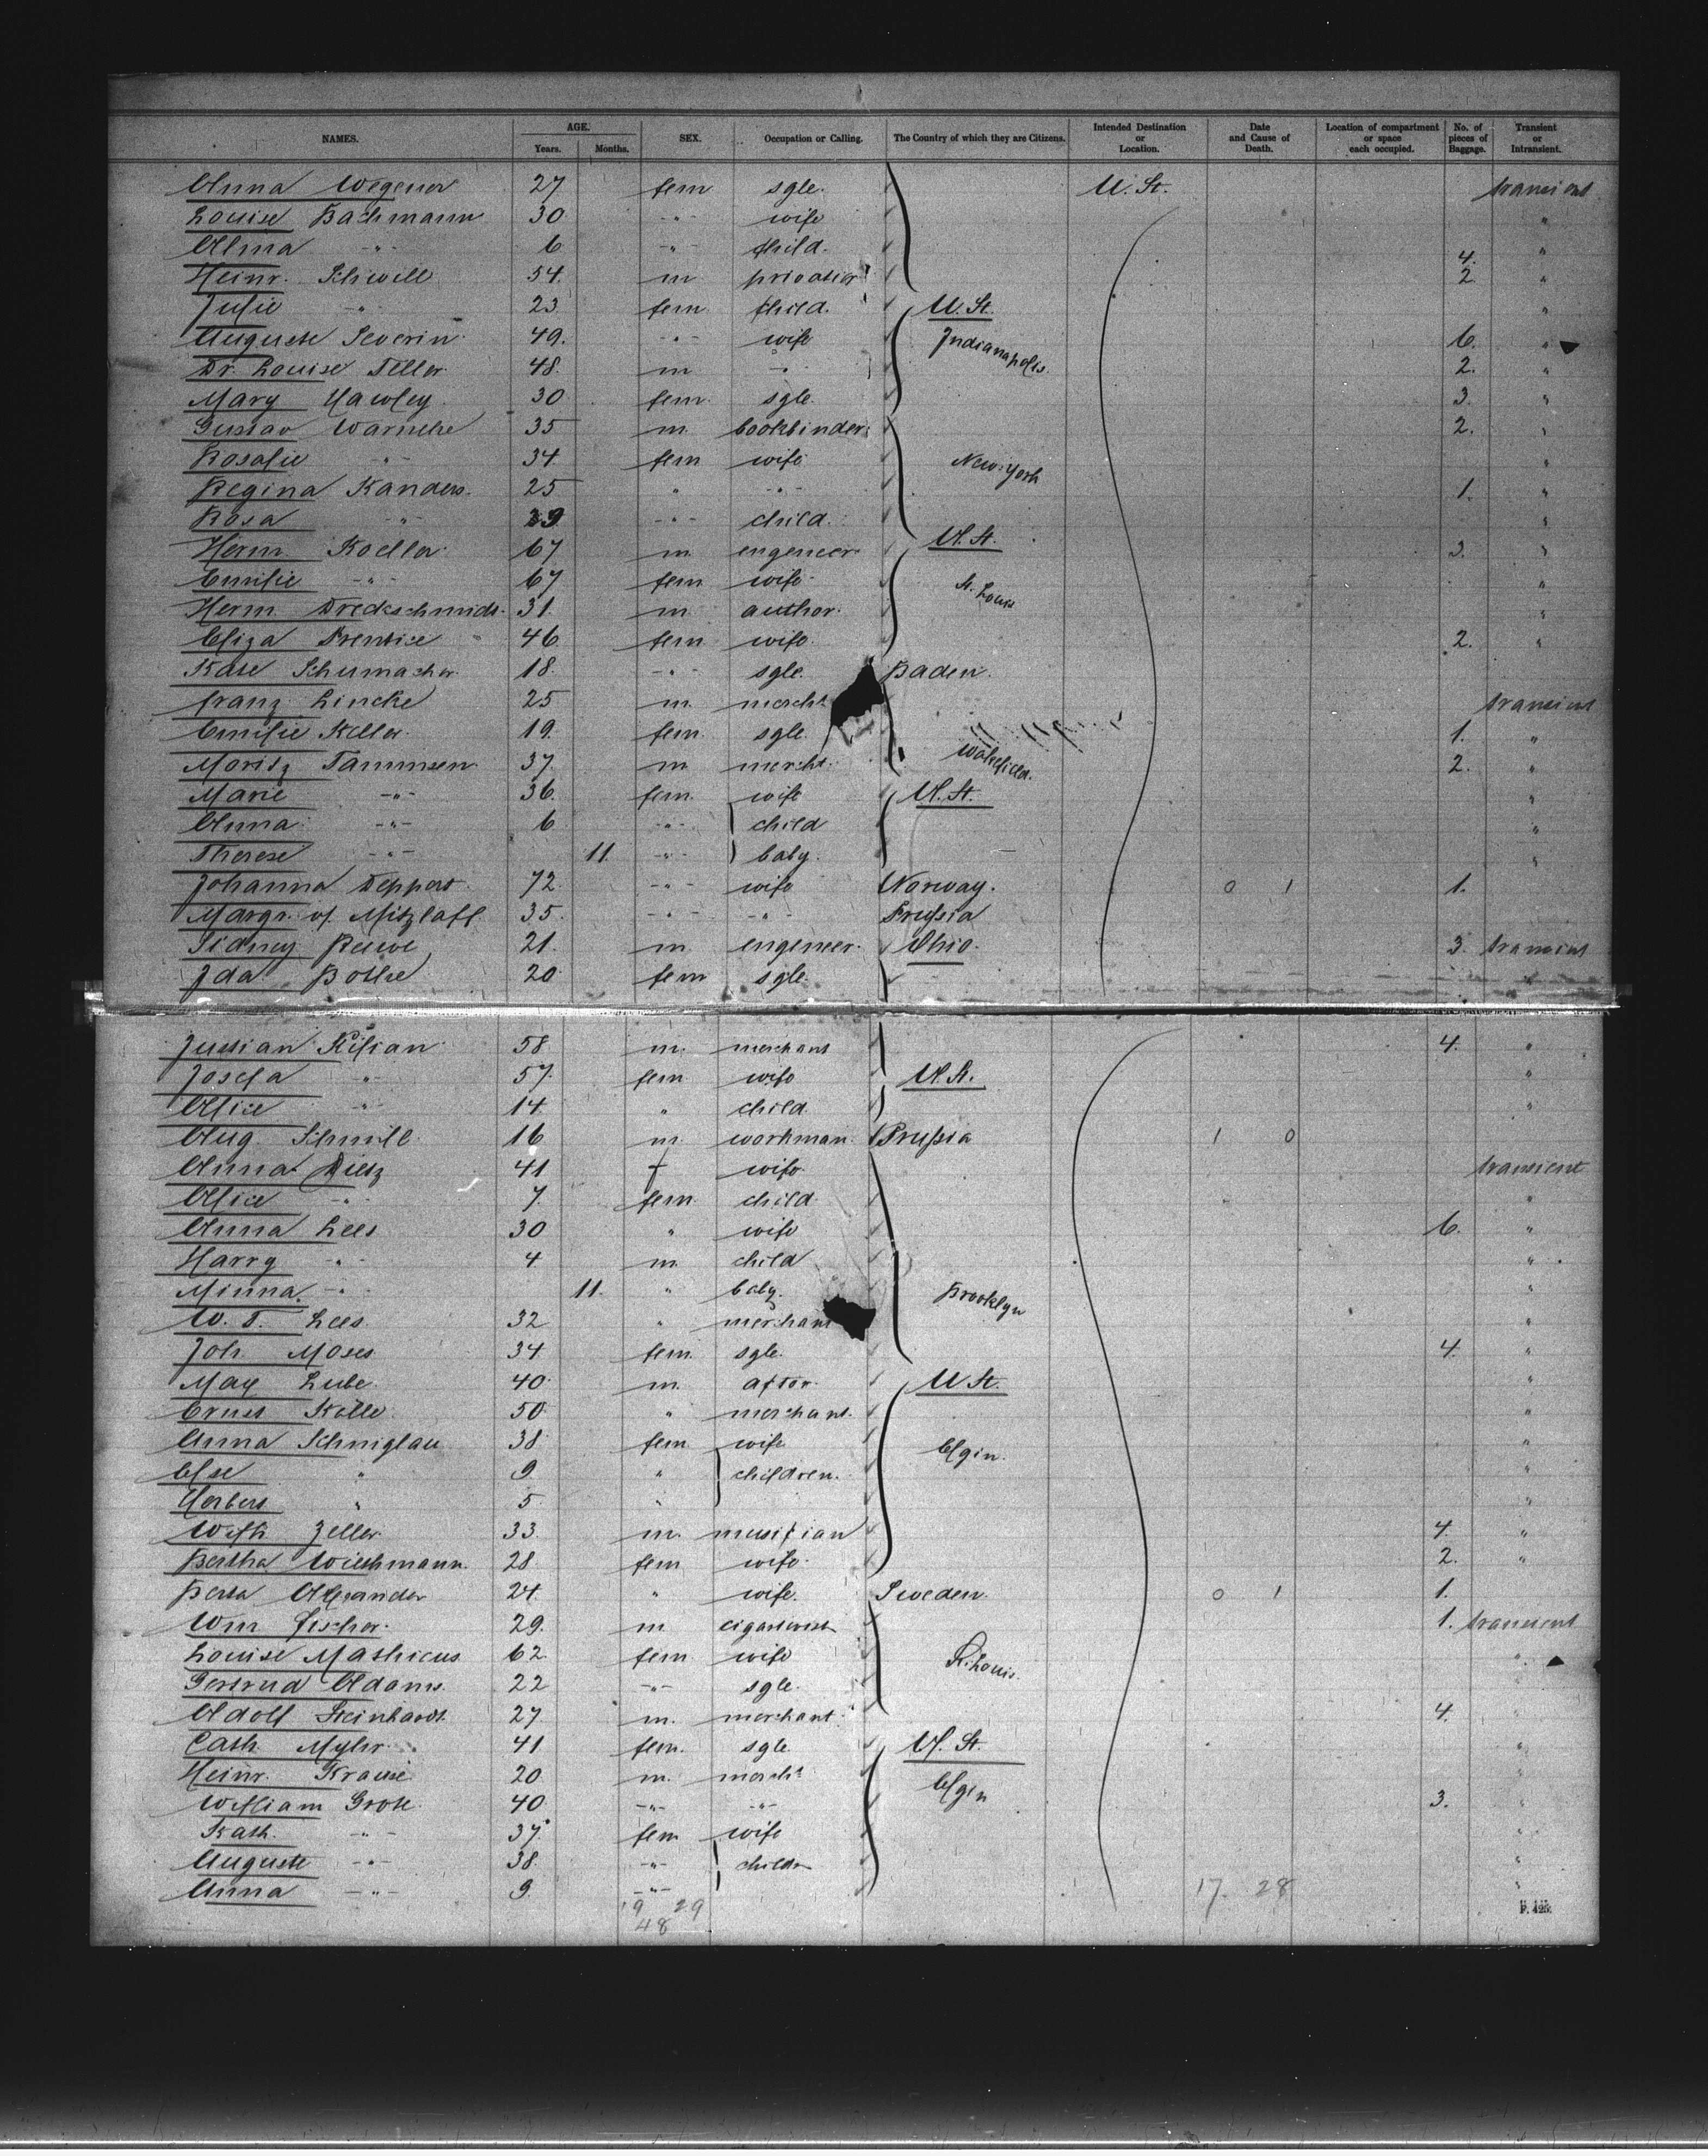 NAMES. AGE. Years. Months. SEX. Occupation or Calling. The Country of which they are Citizens. Intended Destination or Location. Date and Cause of Death. Location of compartment or space each occupied. No. of pieces of Baggage. Transient or Intransient.
Anna Wegener 27 fem sgle. U. St. transient
Louise Bachmann 30 -"- wife "
Alma -"- 6 -"- child. 4. "
Heinr. Schwill 54. m privatier 2. "
Julie -"- 23 fem. child. U. St. "
Auguste Severin 49. -"- wife Indianapolis. 6. "
Dr. Louise Teller 48. m -"- 2. "
Mary Hawley 30 fem. sgle. 3. "
Gustav Warnecke 35 m. bookbinder 2. "
Rosalie -"- 34. fem wife New-York "
Regina Kanders. 25 " -"- 1. "
Rosa -"- -"- child. "
Herm. Koeller 67 m. engeneer U. St. 3. "
Emilie -"- 67 fem wife St. Louis "
Herm. Dreckschmidt. 31. m author. "
Eliza Prentice 46 fem. wife. 2. "
Kate Schumacher. 18. -"- sgle. Baden.
Franz Lincke 25 m. mercht transient
Emilie Keller. 19. fem. sgle. 1. "
Moritz Tammsen 37. m mercht. Wakefield. 2. "
Marie -"- 36. fem. wife U. St. "
Anna -"- 6 -"- child "
Therese -"- 11. -"- baby. "
Johanna Deppert. 72. -"- wife Norway. 0 1 1.
Margr. v. Mitzlaff. 35. -"- -"- Prussia
Sidney Reuve 21. m. engeneer. Ohio. 3. transient
Ida Bothe 20. fem sgle. "
Jussian Kilian 58. m. merchant 4. "
Josefa -"- 57. fem wife U. St. "
Alice -"- 14. " child. "
Aug. Schwill 16 m workman Prussia 1 0
Anna Dietz 41 f wife transient
Alice -"- 7. fem. child "
Anna Lees 30 " wife 6. "
Harry -"- 4 m. child "
Minna -"- 11. " baby. Brooklyn "
W. T. Lees. 32 " merchant "
Joh. Moses 34 fem. sgle. 4. "
Max Lube. 40. m. actor. U St. "
Ernst Kölle. 50. " merchant. "
Anna Schmiglau 38 fem. wife Elgin. "
Else " 9. " children. "
Herbert " 5. " "
Wilh. Zeller. 33. m. musician 4. "
Bertha Wiechmann. 28. fem wife. 2. "
Berta Alexander 24. " wife. Sweden. 0 1 1.
Wm Fischer. 29. m. 1. transient
Louise Mathieus 62. fem wife St. Louis. "
Gertrud Adams. 22 -"- sgle.
Adolf Steinhardt. 27 m. merchant 4. "
Cath. Myhr. 41 fem. sgle. U. St. "
Heinr. Krause. 20 m. mercht Elgin "
William Grote. 40. -"- -"- 3. "
Kath. -"- 37. fem. wife "
Auguste -"- 38. -"- childr "
Anna -"- 9. -"- 17. 28 "
19 29
48